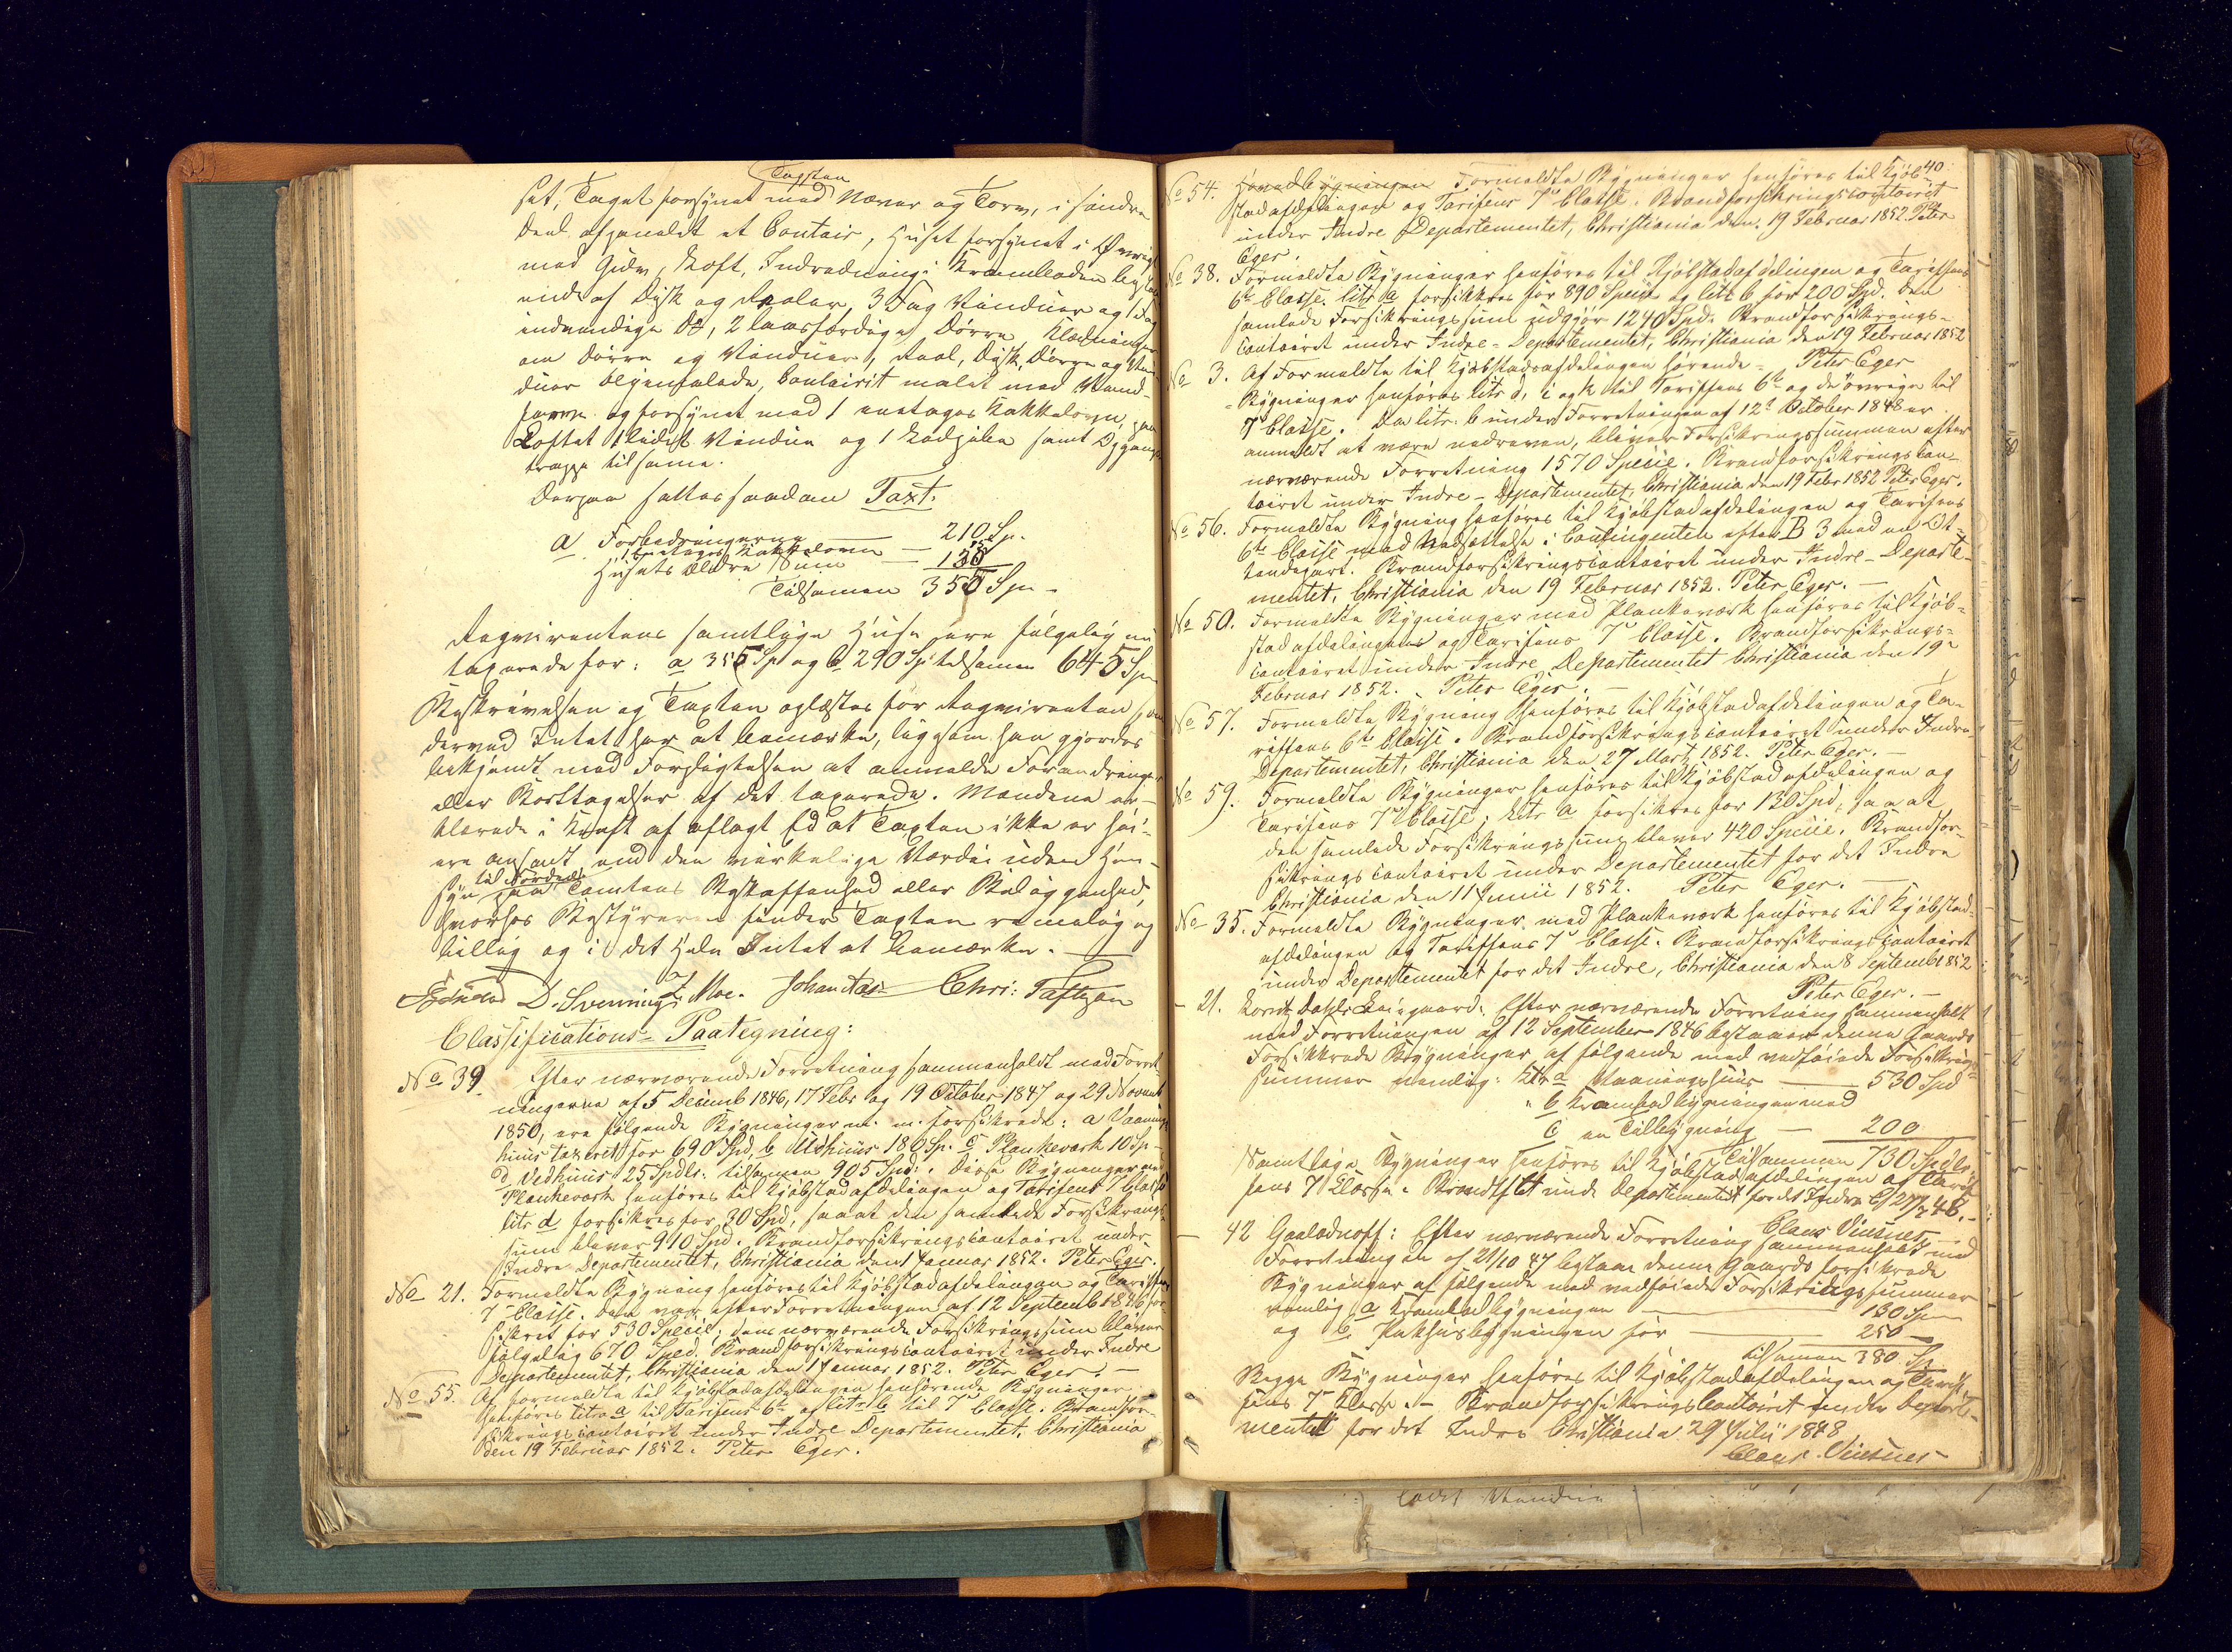 Tagsten
sat, Taget forsynet med Næver og Torv, i søndre
Deel afpanelet et Contoir, Huset forsynet i Øvrigt
med Gulv, Loft, Indredning i Kramboden bestaa
ende af Disk og Reoler, 3 Fag Vinduer og 1 Fag
indvendige do, 2 laasfærdige Dörre Klædninger
om Dörre og Vinduer, Reol, Disk, Dörre og Vin-
duer oljemalede, Contoirit malet med Vand-
farve og forsynet med 1 enetages Kakkelovn, paa
Loftet 1 lidet Vindue og 1 samt Opgangs
trappe til samme.
Derpaa sattes saadan Taxt.
a Forbedringerne — 210 Sp.
1 Etages Kakkelovn —
Husets Ældre Sum —
Tilsamen 355 Spe
Reqvirentens samtlige Huse ere fölgelig nu
taxerede for: a 355 Sp og b 290 Sp tilsamen 645 Spe
Beskrivelsen og Taxten oplæstes for Reqvirenten som
derved Intet har at bemærke, ligesom han gjordes
bekjendt med Forpligtelsen at anmelde Forandringer
eller Borttagelser af det taxerede. Mændene er-
klærede i Kraft af aflagt Ed at Taxten ikke er höi-
ere ansat end den virkelige Værdie uden Hen-
til Nordnæs
syn Tomtens Beskaffenhed eller Beliggenhed,
hvorhos Bestyreren finder Taxten rimelig og
billig og i det Hele Intet at bemærke. —
D. Svenning J. Moe. Johan Aas Chri: Taftezon
Classifications- Paategning:
No 39. Efter nærværende Forretning sammenholdt med Forret-
ningerne af 5 Decemb 1846, 17 Febr og 19 October 1847 og 29 Novemb
1850, ere fölgende Bygninger m. m. forsikrede: a Vaanings
huus taxeret for 690 Spd, b Udhuus 180 Sp. c Plankeværk 10 Sp —
d Vedhuus 25 Spdlr. tilsamen 905 Spd. Disse Bygninger med
Plankeværk henföres til Kjöbstadafdelingen og Tarifens 7 Classe
litr d forsikres for 30 Spd, saaat den samlede Forsikrings-
sum bliver 910 Spd. Brandforsikringscontoiret under
Indre Departementet, Christiania den 1 Januar 1852. Peter Eger.
No 21. Formeldte Bygning henföres til Kjöbstadafdelingen og Tariffens
7de Classe. Den var efter Forretningen af 12 Septemb 1846 for-
sikret for 530 Specie; dens nærværende Forsikringssum bliver
fölgelig 670 Sped. Brandforsikringscontoiret under Indre
Departementet, Christiania den 1 Januar 1852. Peter Eger. —
No 55. Af formeldte til Kjöbstadafdelingen henhörende Bygninger
henföres litra a til Tarifens 6te og litr b til 7de Classe. Brandfor-
sikringscontoiret under Indre Departementet, Christiania
den 19 Februar 1852. Peter Eger.
40.
No 54. Formeldte Bygninger henföres til Kjöb-
stadafdelingen og Tarifens 7de Classe. Brandforsikringscontoiret
under Indre Departementet, Christiania den 19 Februar 1852 Peter
Eger.
No 38. Formeldte Bygninger henföres til Kjöbstadafdelingen og Tariffens
6te Classe. litr a forsikkres for 890 Specie og litr b for 200 Spd. Den
samlede Forsikringssum udgjör 1240 Spd. Brandforsikrings-
Contoiret under Indre-Departementet, Christiania den 19 Februar 1852
Peter Eger
No 3. Af Formeldte til Kjöbstadsafdelingen hörende
Bygninger henföres litr d, i og k til Tariffens 6te og de övrige til
7de Classe. Da litr. b under Forretningen af 12te October 1848 er
anmeldt at være nedreven, bliver Forsikringssummen efter
nærværende Forretning 1570 Specie. Brandforsikringscon-
toiret under Indre-Departementet, Christiania den 19 Febr 1852 Peter Eger.
No 56. Formeldte Bygning henföres til Kjöbstadafdelingen og Tarifens
6te Classe med Nedsættelse i Contingenten efter B 3 med en Ot-
tendepart. Brandforsikringscontoiret under Indre-Departe-
mentet, Christiania den 19 Februar 1852. Peter Eger. —
No 50. Formeldte Bygninger med Plankeværk henföres til Kjöb-
stadafdelingen og Tarifens 7de Classe. Brandforsikrings-
contoiret under Indre Departementet Christiania den 19de
Februar 1852. Peter Eger. —
No 57. Formeldte Bygning henföres til Kjöbstadafdelingen og Ta-
riffens 6te Classe. Brandforsikringscontoiret under Indre
Departementet, Christiania den 27 Marts 1852. Peter Eger. —
No 59. Formeldte Bygninger henföres til Kjöbstadafdelingen og
Tarifens 7de Classe; Litr a forsikres for 130 Spd, saaat
den samlede Forsikringssum bliver 420 Specie. Brandfor-
sikringscontoiret under Departementet for det Indre
Christiania den 11 Junii 1852. Peter Eger. —
No 35. Formeldte Bygninger med Plankeværk henföres til Kjöbstad-
afdelingen og Tariffens 7de Classe. Brandforsikringscontoiret
under Departementet for det Indre, Christiania den 8 Septemb 1852
Peter Eger. —
— 21. Efter nærværende Forretning sammenholdt
med Forretningen af 12 September 1846 bestaaer denne Gaards
Forsikkrede Bygninger af fölgende med vedföiede Forsikrings-
summer nemlig: Litr a Vaaningshuus — 530 Spd
" b Krambodbygningen med
c en Tilbygning — 200
Tilsammen 730 Spdlr.
Samtlige Bygninger henföres til Kjöbstadsafdelingen og Tarif-
fens 7 Classe. under Departementet for det Indre
Claus Vinsnes
— 42 Efter nærværende Forretning sammenholdt med
Forretningen af 21/10 47 bestaar denne Gaards forsikrede
Bygninger af fölgende med vedföiede Forsikringssummer
nemlig a Krambodbygningen — 130 Spe
og b Pakhusbygningen for — 250 —
tilsamen 380 Sp
Begge Bygninger henföres til Kjöbstadafdelingen og Tarif-
fens 7de Classe. — Brandforsikrings Contoiret under Departe-
mentet for det Indre Christiania 29 Julii 1848
Claus Vinsnes